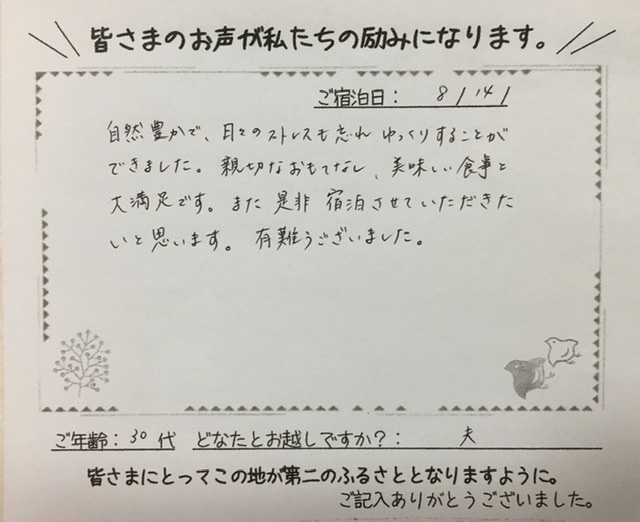 皆さまのお声が私たちの励みになります。
ご宿泊日： 8/14/
自然豊かで、日々のストレスも忘れゆっくりすることが
できました。親切なおもてなし、美味しい食事と
大満足です。また是非宿泊させていただきた
いと思います。有難うございました。
ご年齢：30代 どなたとお越しですか？： 夫
皆さまにとってこの地が第二のふるさととなりますように。
ご記入ありがとうございました。